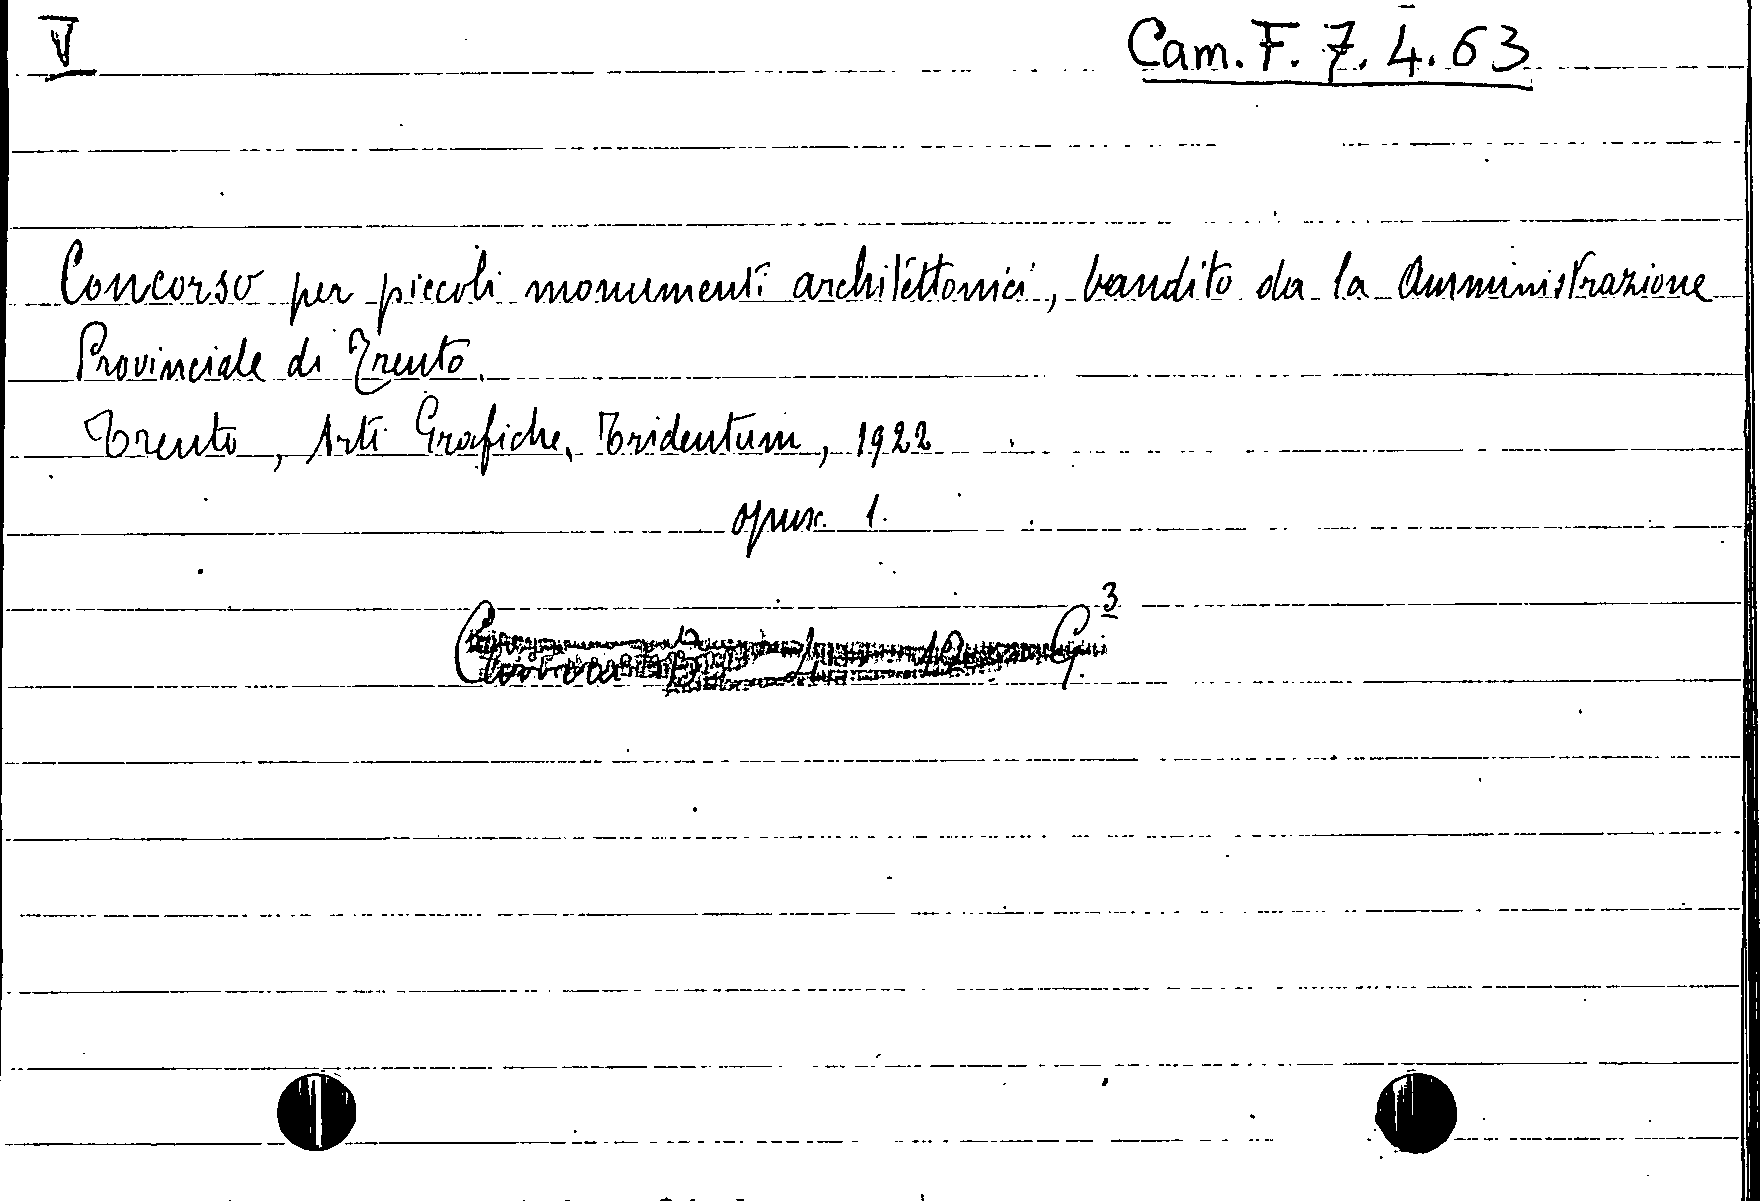 V
Cam. F. 7. 4. 63
Concorso per piccoli monumenti architettonici, bandito da la Amministrazione
Provinciale di Trento.
Trento, Arti Grafiche, Tridentum, 1922
opusc. 1.
3